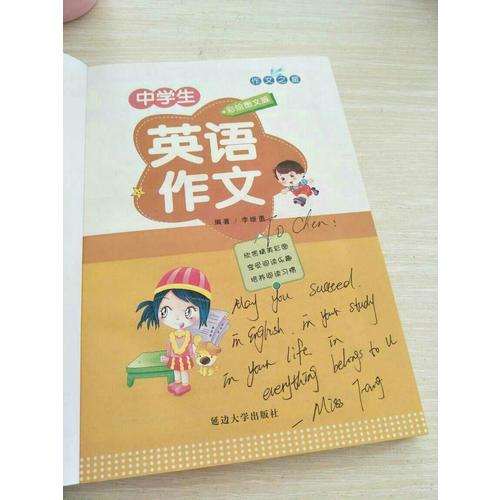 作文之星
中学生
彩绘图文版
英语
作文
编著/李继勇
To Chen:
欣赏精美彩图
享受阅读乐趣
培养阅读习惯
May you succeed
in English. in your study
in your life. in
everything belongs to u
— Miss Fang
延边大学出版社